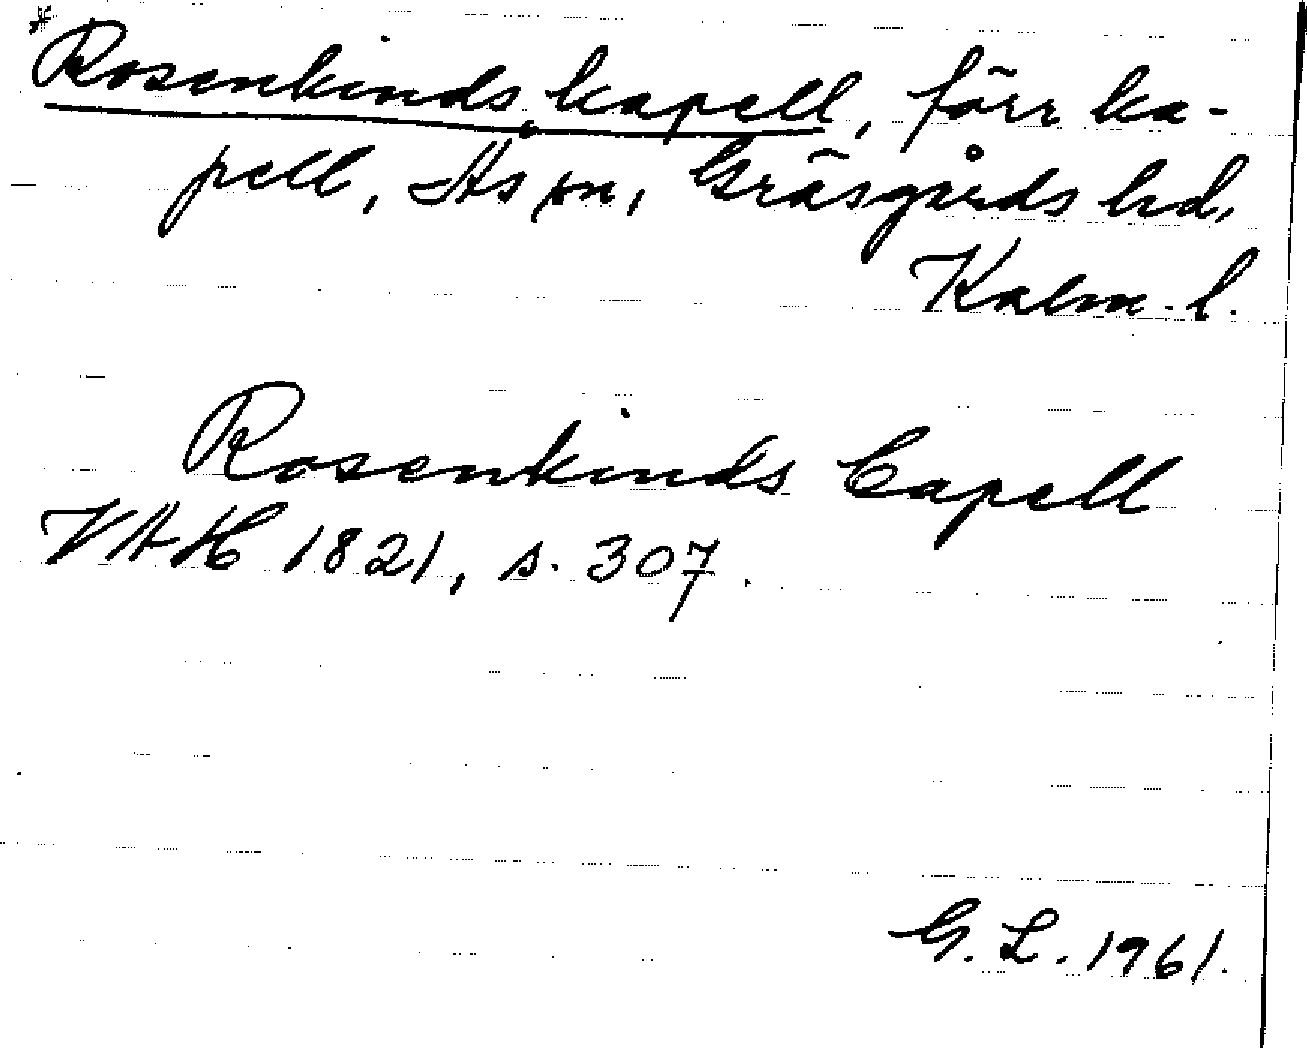 *Rosenkinds kapell, förr ka-
pell, Ås sn, Gräsgårds hd,
Kalm. l.
Rosenkinds Capell
VAH 1821, s. 307.
G. L. 1961.